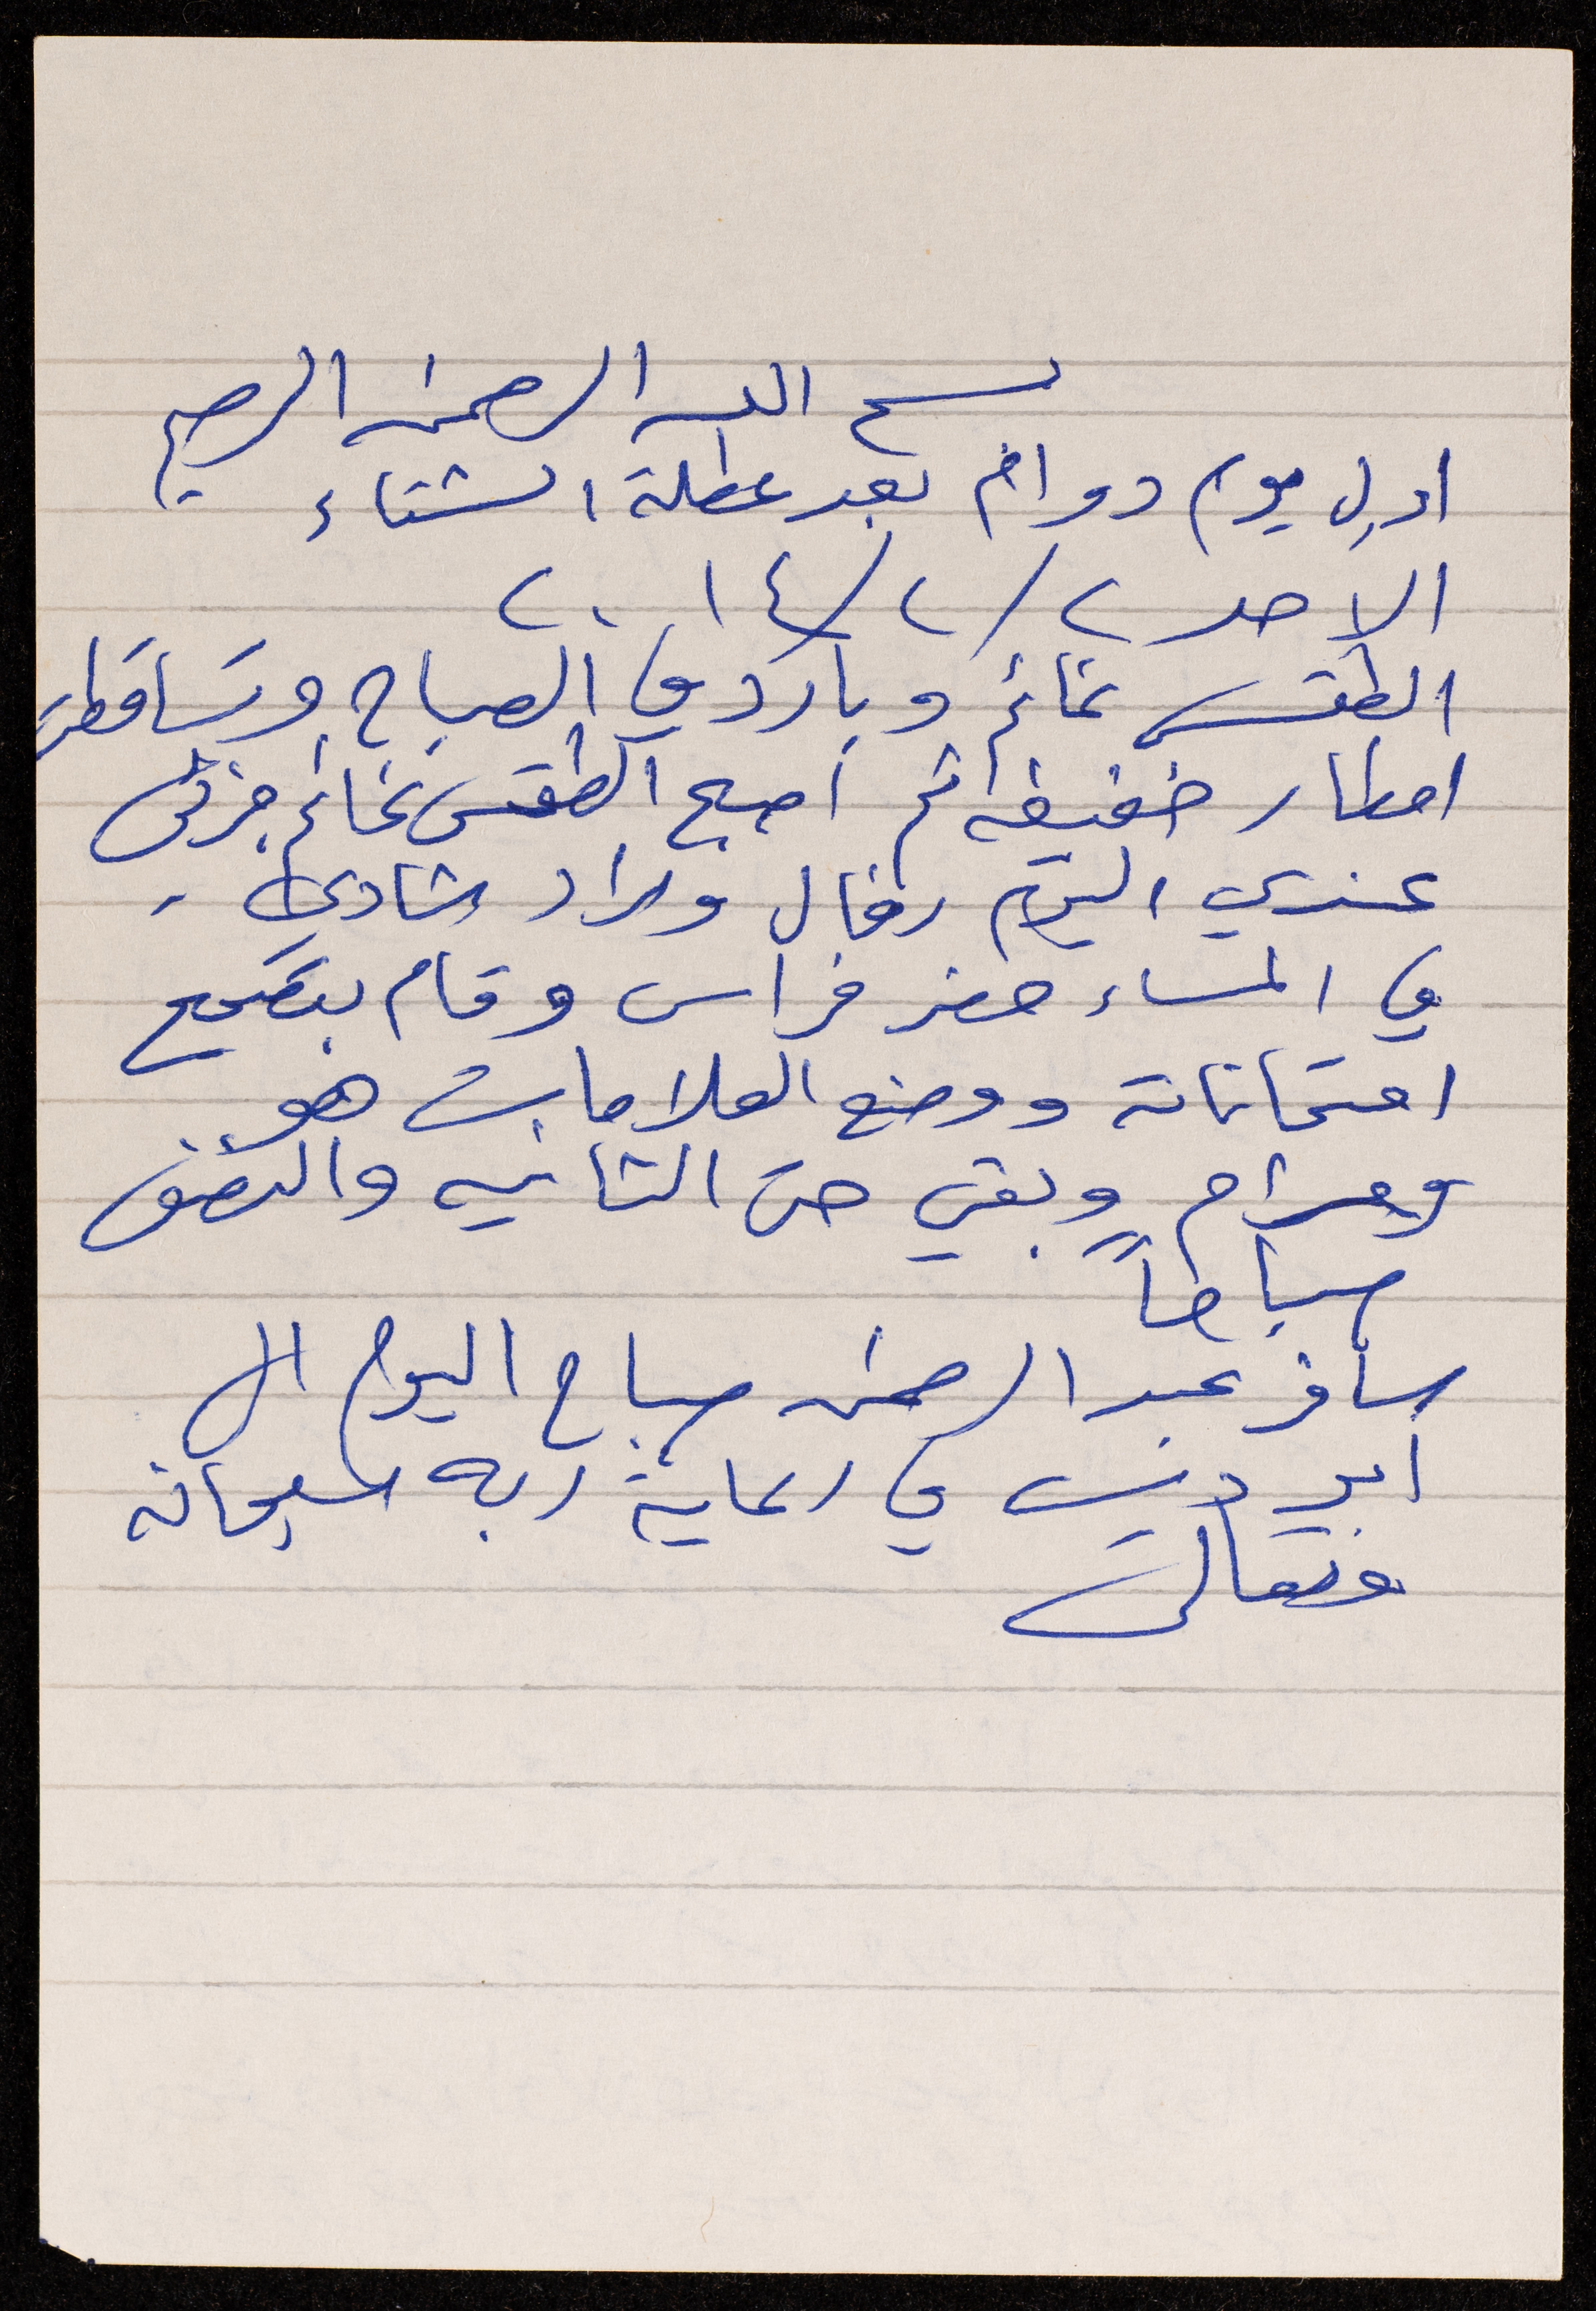 بسم الله الرحمن الرحيم
اول يوم دوام بعد عطلة الشتاء
الاحد ٢/٢/٢٠١٤
الطقس غائم وبارد في الصباح وتساقطت
امطار خفيفه ثم اصبح الطقس غائم جزئي
عندي اليوم رفال واراد شادي
في المساء حضر فراس وقام بتصحيح
امتحاناته ووضع العلامات هو
ومرام وبقي حتى الثانيه والنصف
صباحاً
سافر عبد الرحمن صباح اليوم الى
ابو دبي في رعاية ربه سبحانه
وتعالى